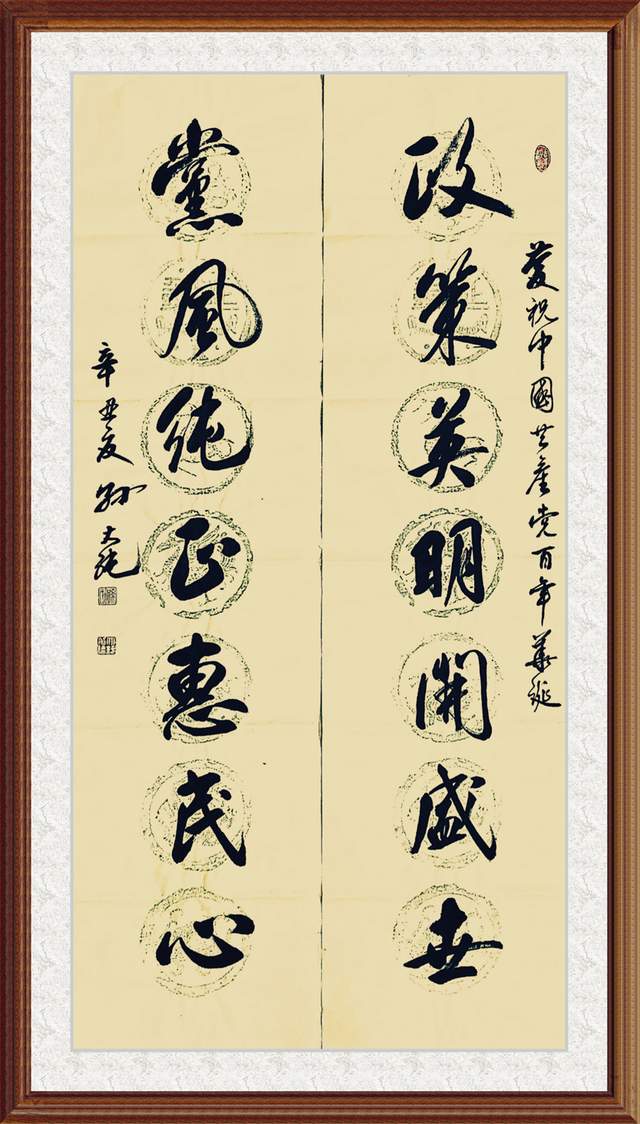 慶祝中國共產党百年華诞
政策英明開盛世
黨風純正惠民心
辛丑夏孙大純